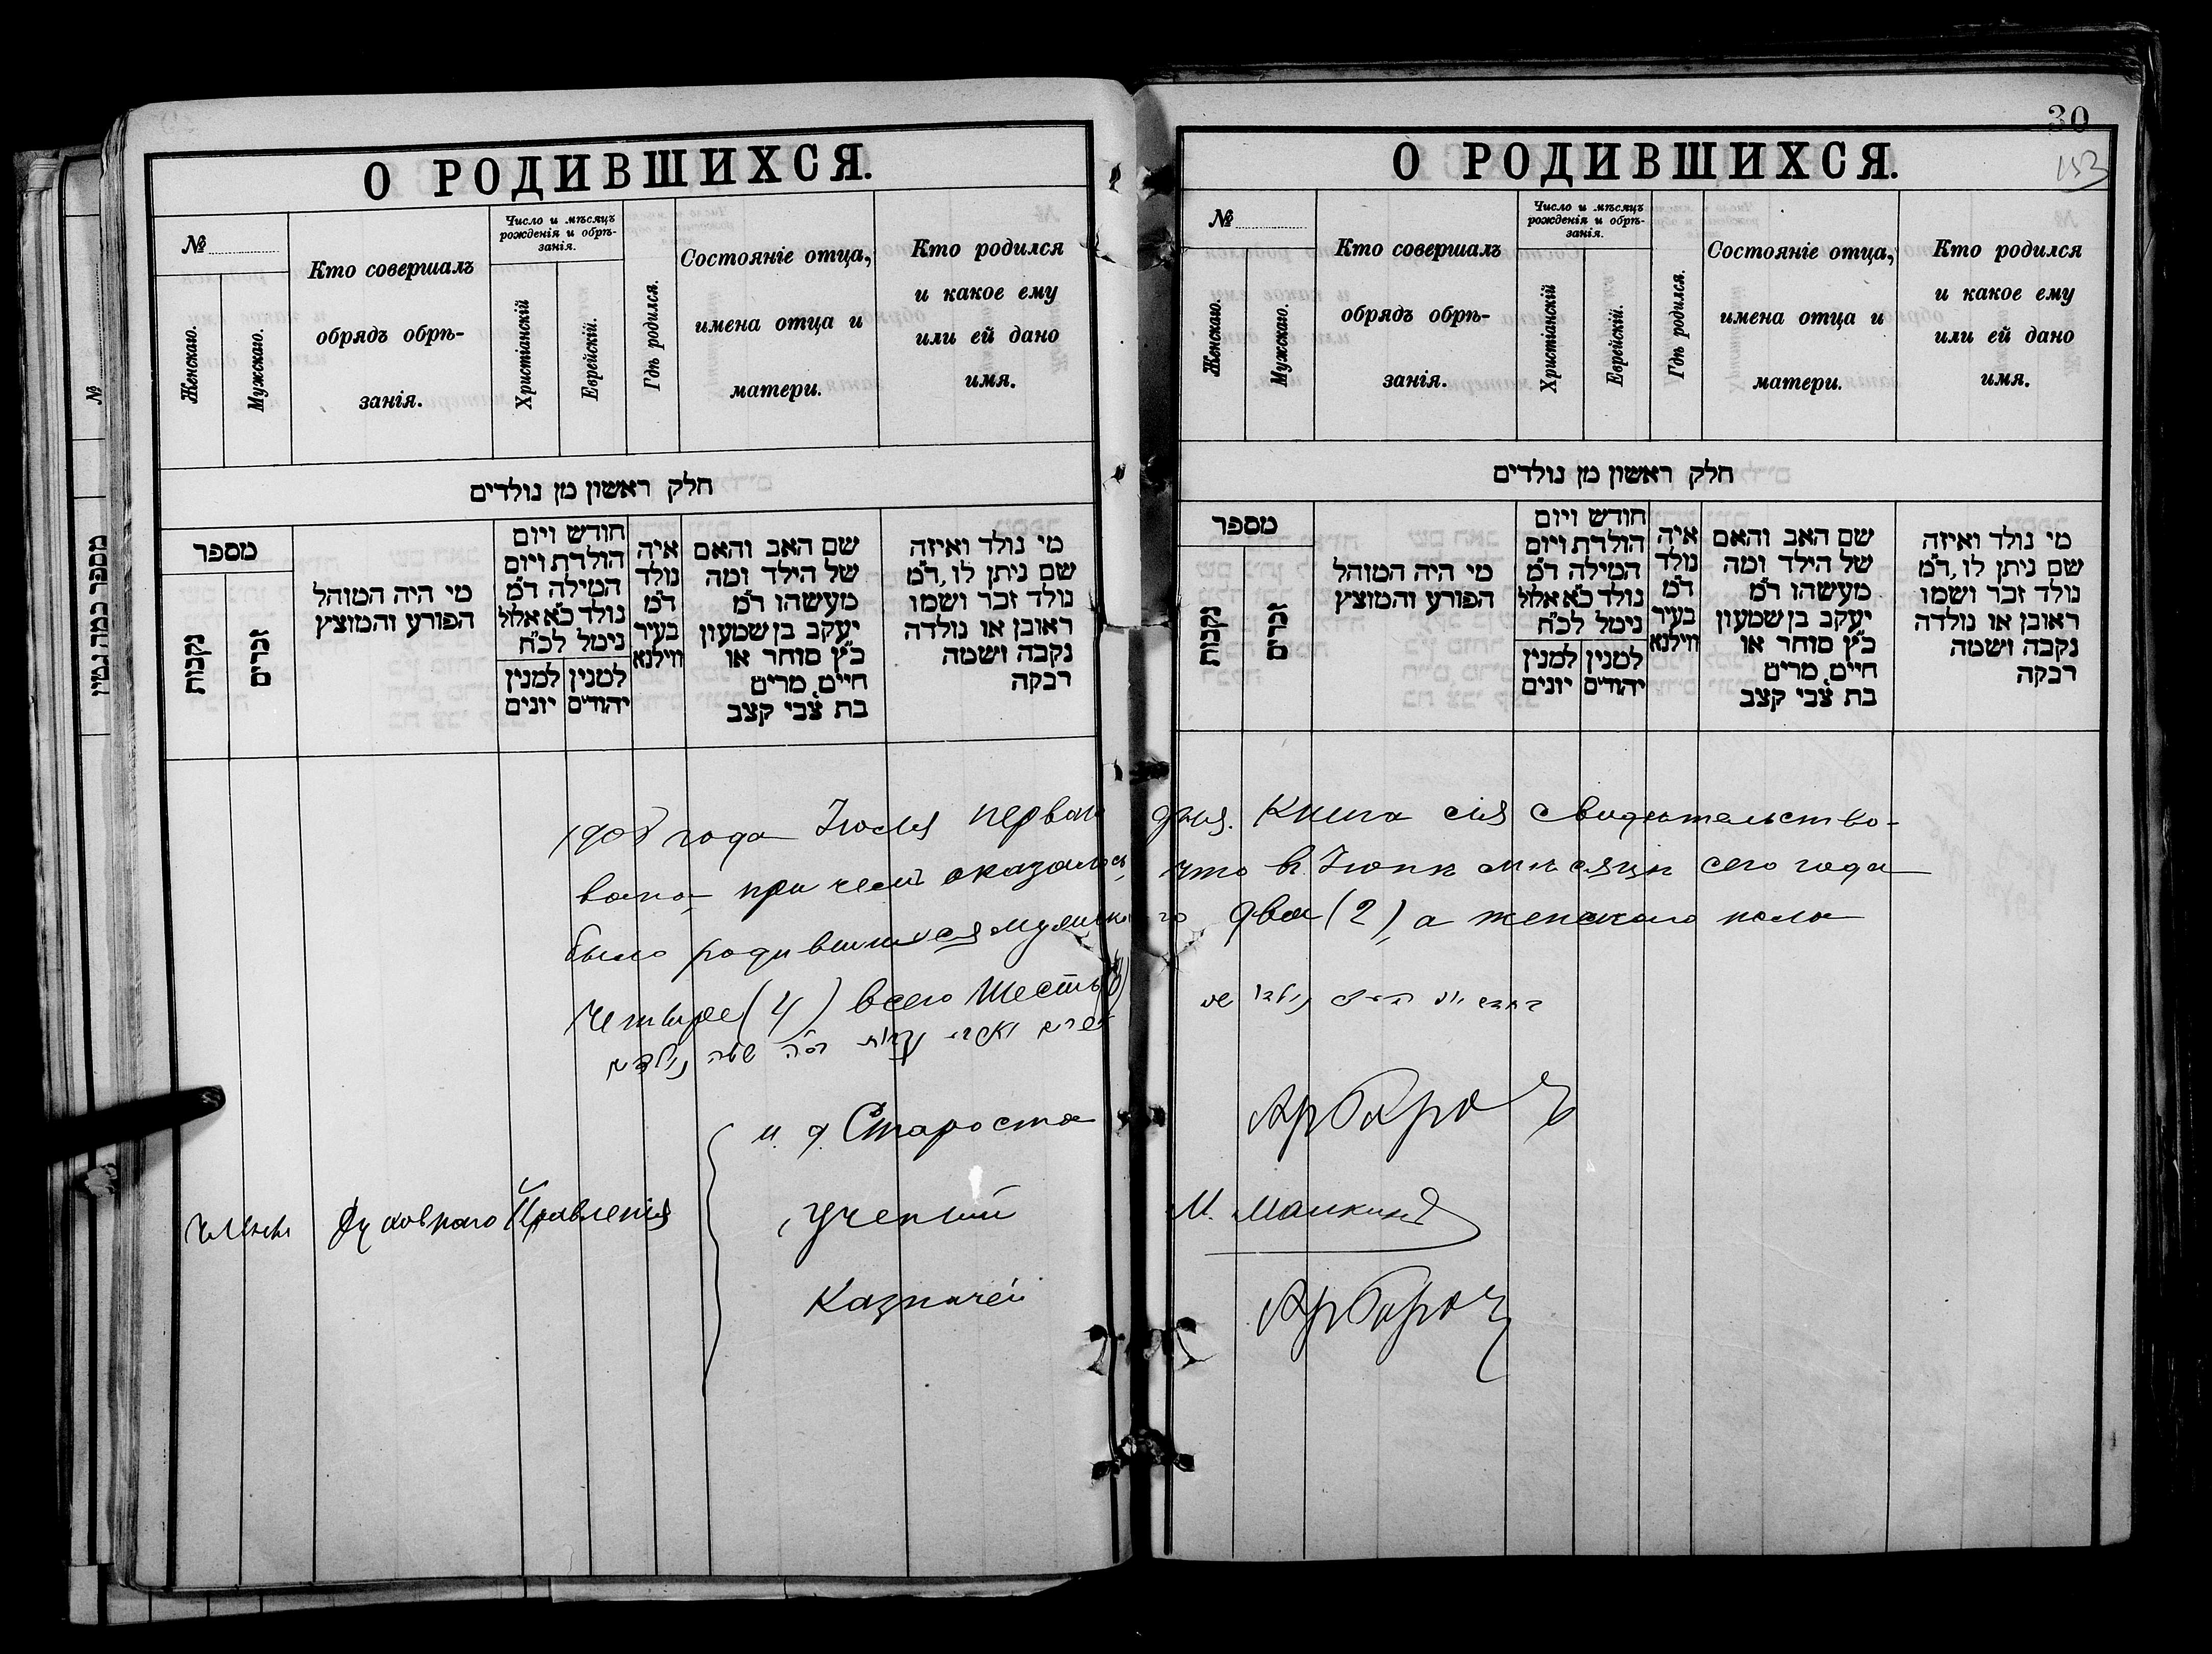 О РОДИВШИХСЯ.
№
Женскаго.
Мужскаго.
Кто совершалъ
обрядъ обрѣ-
занія.
Число и мѣсяцъ
рожденія и обрѣ-
занія.
Христіанскій
Еврейскій.
Гдѣ родился.
Состояніе отца,
имена отца и
матери.
Кто родился
и какое ему
или ей дано
имя.
חלק ראשון מן נולדים
מספר
נקבות
זכרים
מי היה המוהל
הפורע והמוצץ
חודש ויום
הולדת ויום
המילה ד״מ
נולד כ״א אלול
נימל לכ״ח
למנין יונים
למנין יהודים
איה
נולד
ד״מ
בעיר
ווילנא
שם האב והאם
של הילד ומה
מעשהו ד״מ
יעקב בן שמעון
כ״ץ סוחר או
חיים, מרים
בת צבי קצב
מי נולד ואיזה
שם ניתן לו, ד״מ
נולד זכר ושמו
ראובן או נולדה
נקבה ושמה
רבקה
30
153
О РОДИВШИХСЯ.
№
Женскаго.
Мужскаго.
Кто совершалъ
обрядъ обрѣ-
занія.
Число и мѣсяцъ
рожденія и обрѣ-
занія.
Христіанскій
Еврейскій.
Гдѣ родился.
Состояніе отца,
имена отца и
матери.
Кто родился
и какое ему
или ей дано
имя.
חלק ראשון מן נולדים
מספר
נקבות
זכרים
מי היה המוהל
הפורע והמוצץ
חודש ויום
הולדת ויום
המילה ד״מ
נולד כ״א אלול
נימל לכ״ח
למנין יונים
למנין יהודים
איה
נולד
ד״מ
בעיר
ווילנא
שם האב והאם
של הילד ומה
מעשהו ד״מ
יעקב בן שמעון
כ״ץ סוחר או
חיים, מרים
בת צבי קצב
מי נולד ואיזה
שם ניתן לו, ד״מ
נולד זכר ושמו
ראובן או נולדה
נקבה ושמה
רבקה
года Іюля перваго дня. Книга сія свидѣтельство-
вана, при чемъ оказалось, что въ Іюнѣ мѣсяцѣ сего года
было родившихся мужскаго два (2), а женскаго пола
четыре (4) всего шесть (6)
и. д. Староста
Члены Духовнаго Правленія
Ученый
М.
Казначей
№